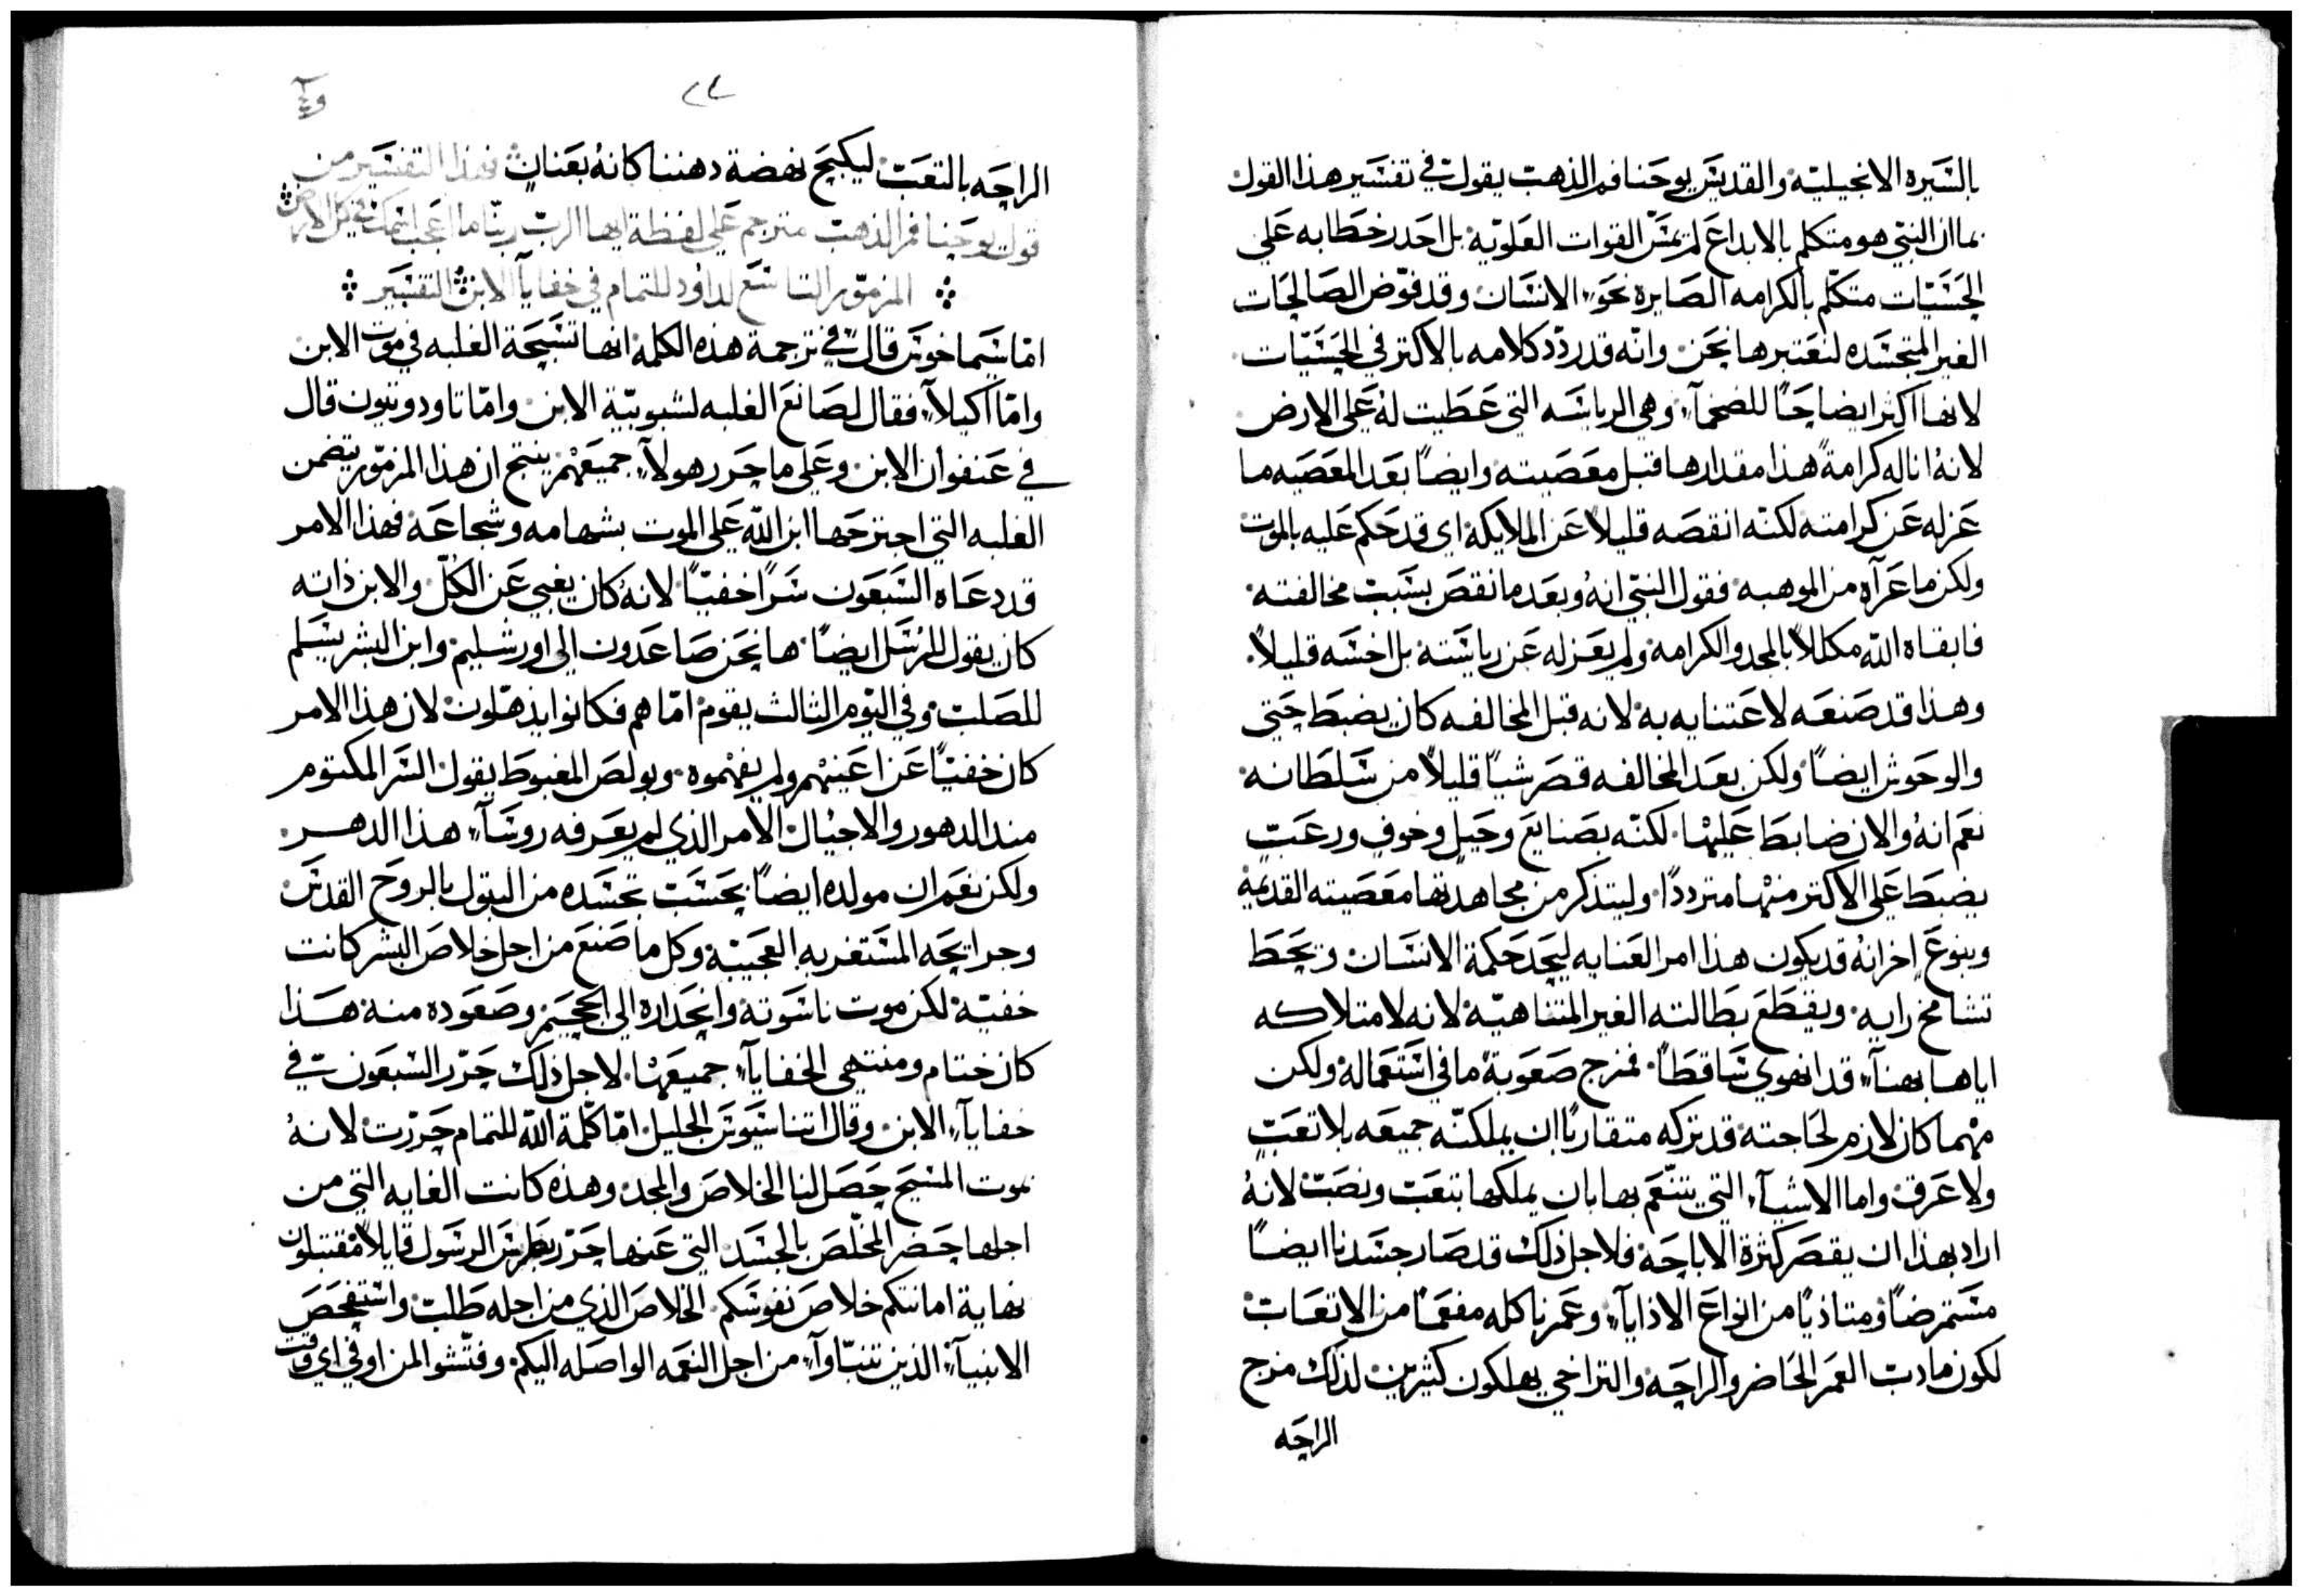 بالسيره الانجيليّة والقديس يوحنا فم الذهب يقول في تفسير هذا القول
بما ان النبي هو متكلم بالابداع لم يمسّ القوات العلويّة بل احدر خطابه على
الحسّيّات متكلّم بالكرامه الصايره نحو الانسان وقد فوّض الصالحات
الغير المتجسّده لنعتبرها نحن وانّه قد ردّد كلامه بالاكتر في الحسّيّات
لانها اكثر ايضاحًا للضخمآء وهي الرياسه التي عطيت له على الارض
لانهُ اناله كرامةً هذا مقدارها قبل معصيته وايضًا بعد المعصيه ما
عزله عن كرامته لكنّه انقصه قليلاً عن الملايكة اي قد حكم عليه بالموت
ولكن ما عرآه من الموهبه فقول النبّي انهُ وبعد ما نقص بسبب مخالفته
فابقاه اللّه مكللاً بالمجد والكرامه ولم يعزله عن رياسته بل اخسّه قليلاً
وهذا قد صنعه لاعتنايه به لانه قبل المخالفه كان يضبط حتي
والوحوش ايضًا ولكن بعد المخالفه قصر شيًا قليلاً من سلطانه
نعم انهُ والان ضابط عليها لكنّه بصنايع وحيل وخوف ورعب
يضبط على الاكتر منها مترددًا وليتذكر من مجاهدتها معصيته القديمة
وبنوع اخر انهُ قد يكون هذا امر العنايه ليحد حكمة الانسان وتحط
تشامخ رايه ويقطع بطالته الغير المتناهيّة لانه لامتلاكه
اياها بهنآء قد انهوي ساقطًا فمزج صعوبة ما في استعماله ولكن
مهما كان لازم لحاجته قد تركه متقاربًا ان يملكنّه جميعه بلا تعب
ولا عرق واما الاشيآء التي يتنّعم بها بان يملكها بتعب ونصب لانهُ
اراد بهذا ان يقصر كثرة الاباحة فلاجل ذلك قد صار جسدنا ايضًا
مستمرضًا ومتاذيًا من انواع الاذايآء وعمرنا كله مفعمًا من الاتعاب
لكون مادب العمر الحاضر والراحة والتراخي يهلكون كثيرين لذلك مزج
الراحه
٢٤
الراحه بالتعب ليكبح نهضة دهننا كانهُ بعنان فهذا التفسير من
قول يوحنا فم الذهب مترجم على لفظة ايها الرب ربّنا ما اعجب اسمك في كل الارض
المزمّور التاسع لداود للتمام في خفايآ الابن التفسير
امّا سيماخوس قال في ترجمة هذه الكلمه انها تسبحة الغلبه في موت الابن
وامّا اكيلآء فقال لصانع الغلبه لشبوبيّة الابن وامّا تاودوتيون قال
في عنفوان الابن وعلى ما حرر هولآء جميعهم ينتج ان هذا المزمّور يتضمن
الغلبه التي اجترحها ابن اللّه على الموت بشهامه وشجاعة فهذا الامر
قد دعاه السبعون سرًا خفيًا لانهُ كان يغبي عن الكلّ والابن ذاته
كان يقول للرسل ايضًا ها نحن صاعدون الى اورشليم وابن البشر يسلم
للصلب وفي اليوم الثالث يقوم امّا هم فكانوا يذهّلون لان هذا الامر
كان خفيًا عن اعينهم ولم يفهموه وبولص المغبوط يقول السر المكتوم
مند الدهور والاجيال الامر الذي لم يعرفه روسآء هذا الدهر
ولكن نعم ان مولده ايضًا بحسب تجسّده من البتول بالروح القدس
وجرايحه المستغربه العجيبة وكل ما صنع من اجل خلاص البشر كانت
خفيّة لكن موت ناسوته وانحداره الى الجحيم وصعوده منه هذا
كان ختام ومنتهى الخفايآء جميعها لاجل ذلك حرّر السبعون في
خفايآء الابن وقال اتناسيوس الجليل امّا كلمة اللّه للتمام حرّرت لانهُ
بموت المسيح حصل لنا الخلاص والمجد وهذه كانت الغايه التي من
اجلها حضر المخلّص بالجسد التي عنها حرّر بطرس الرسول قايلاً مقتبلون
نهاية امانتكم خلاص نفوسكم الخلاص الذي من اجله طلب واستفحص
الانبيآء الذين تنبّاوآ من اجل النعمه الواصله اليكم وفتّشوا لمن او في اي وقت